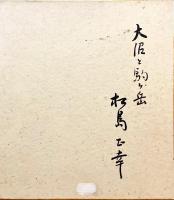 大沼と駒ヶ岳
松島正幸